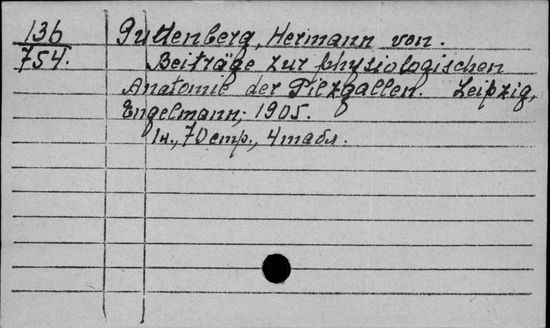 136 Guttenberg, Hermann von.
754. Beiträge zur physiologischen
Anatomie der Pilzgallen. Leipzig,
Engelmann, 1905.
1л., 70 стр., 4 табл.